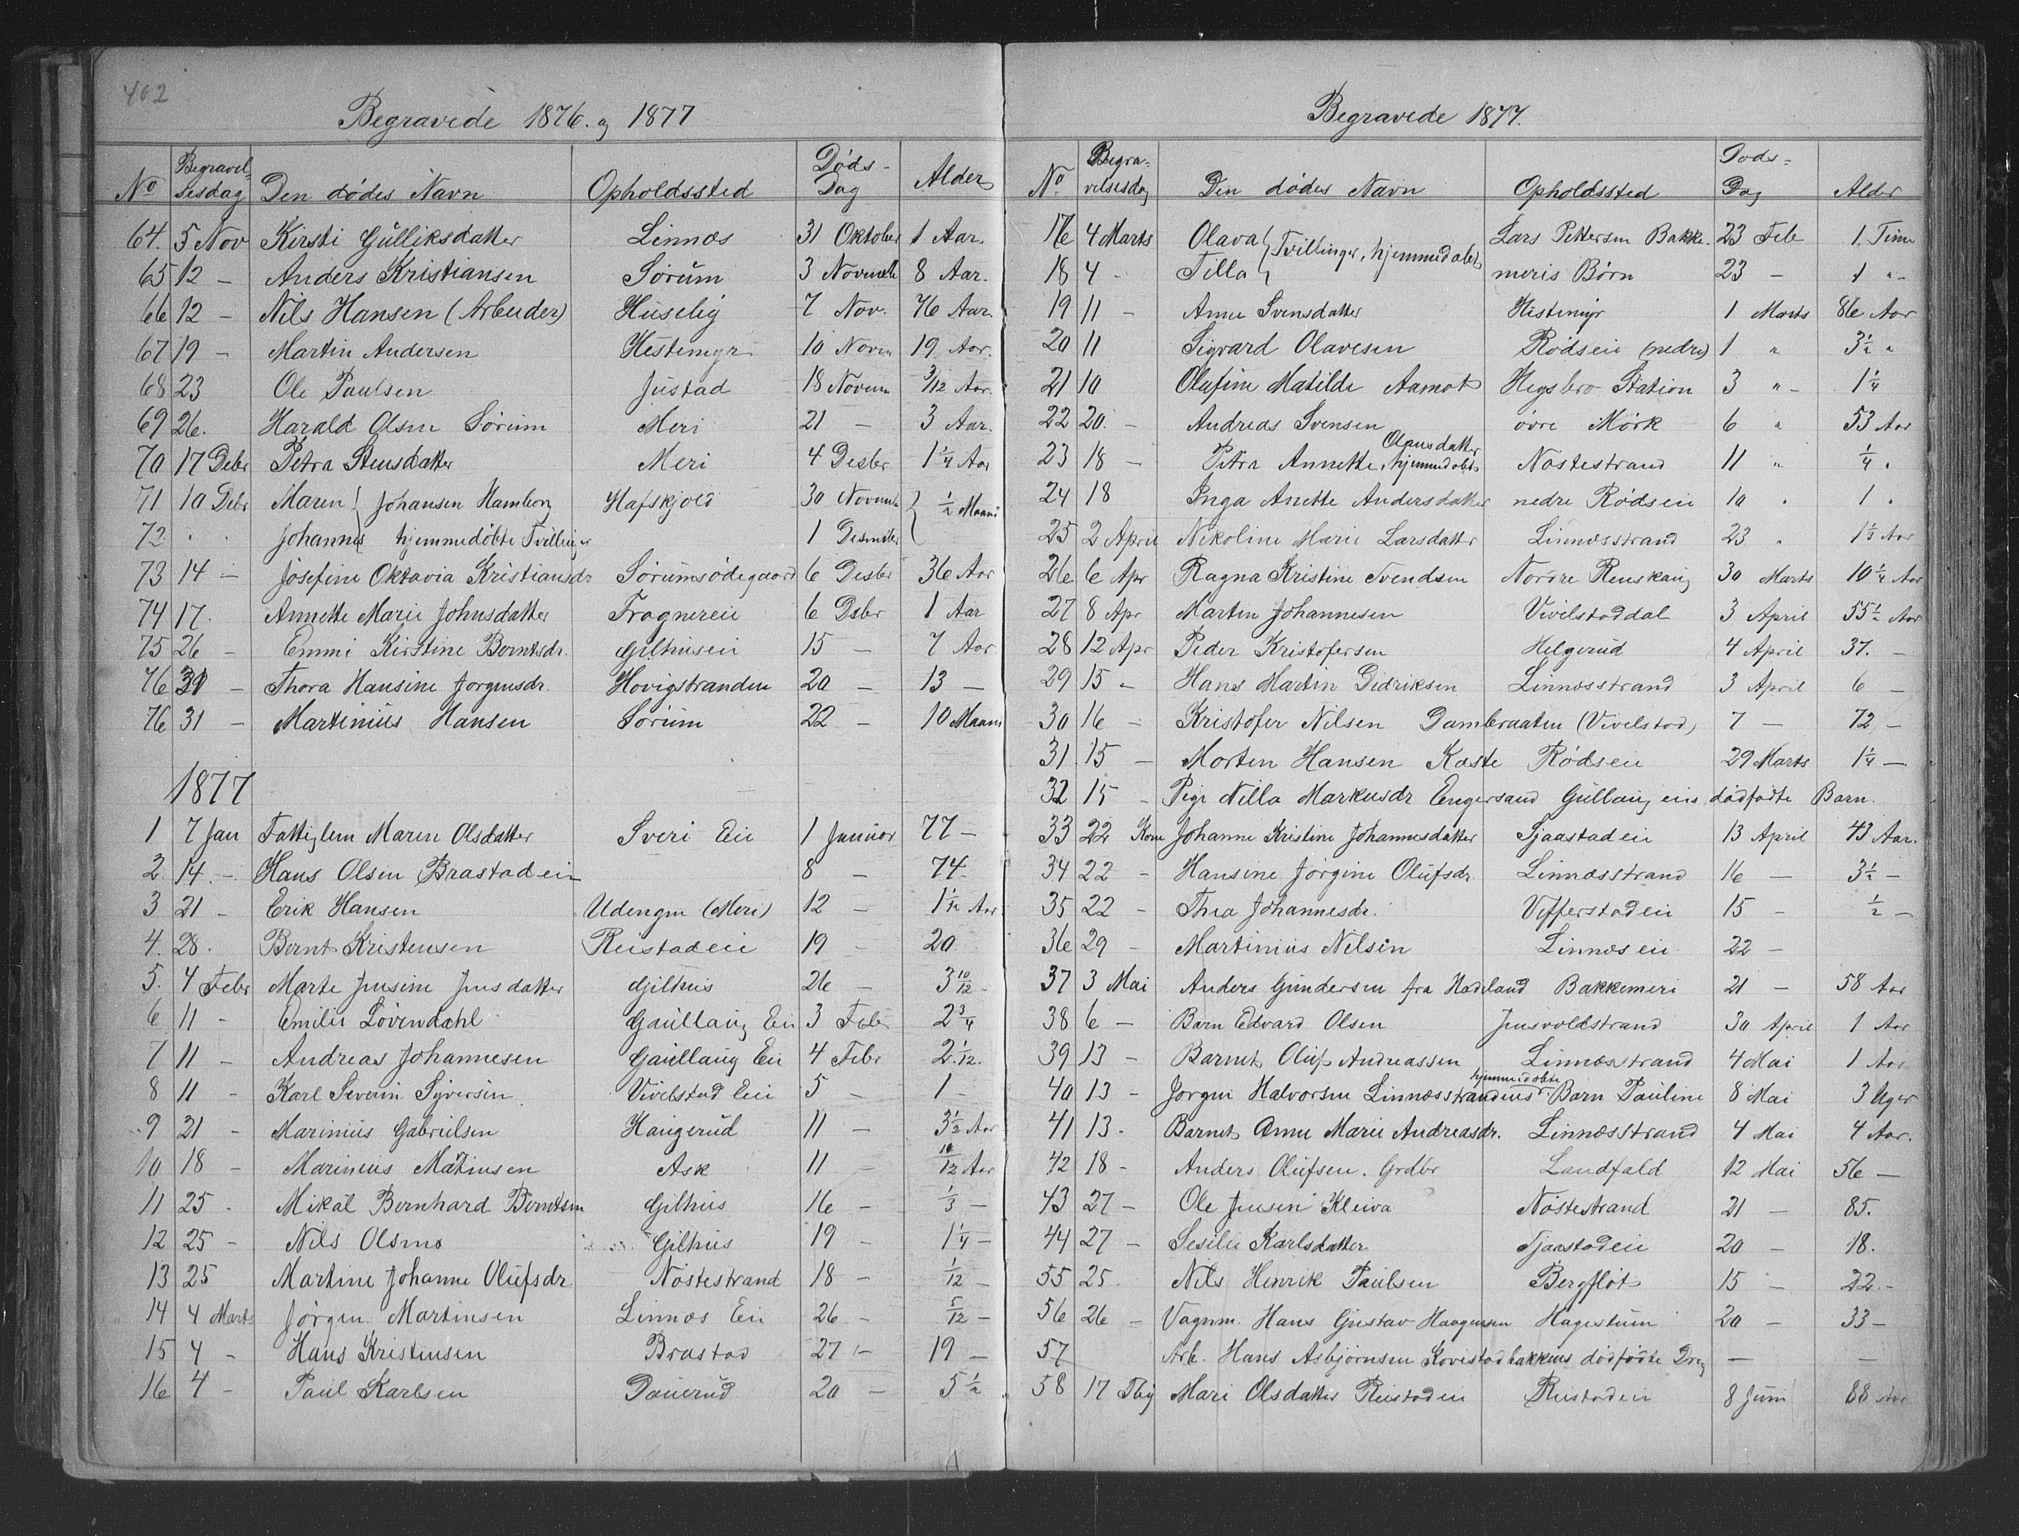 402
Begravede 1876. og 1877
No Begravelsesdag Den dødes Navn Opholdssted Døds-Dag Alder
64. 5 Nov Kirsti Gulliksdatter Linnæs 31 Oktober 1 Aar.
65 12 — Anders Kristiansen Sørum 3 Novembr 8 Aar.
66 12 — Nils Hansen (Arbeider) Huseby 7 Nov. 76 Aar.
67 19 — Martin Andersen Hestemyr 10 Novm 19 Aar.
68 23 Ole Paulsen Justad 18 Novem 3/12 Aar.
69 26. Harald Olsen Sørum Meri 21 — 3 Aar.
70 17 Debr Petra Stensdatter Meri 4 Desbr 1 1/4 Aar
71 10 Debr Maren } Johansen Hamborg Hafskjold 30 Novemb } 1/2 Maani
72 " " Johannes } hjemmedøbte Tvillinger 1 Desember
73 14 — Josefine Oktavia Kristiansdr Sørumsødegaard 6 Desbr 36 Aar
74 17. Annette Marie Johnsdatter Frognereie 6 Dsbr 1 Aar
75 26 — Emmi Kirstine Berntsdr. Gilhuseii 15 — 7 Aar.
76 31 — Thora Hansine Jørgensdr. Hovigstranden 20 — 13 —
76 31 — Martinius Hansen Sørum 22 — 10 Maani
1877
1 7 Jan Fattiglem Maren Olsdatter Sveri Eie 1 Januar 77 —
2. 14. — Hans Olsen Brastadeie 8 — 74. —
3 21 — Erik Hansen Udengen (Meri) 12 — 1 1/12 Aar
4. 28. Bernt Kristensen Reistadeie 19 — 20.
5. 4 Febr Marte Jensine Jensdatter Gilhus 26 — 3 10/12 —
6 11 — Emilie Løvendahl Gaullaug Eie 3 Feb 2 3/4
7 11 — Andreas Johannesen Gaullaug Eie 4 Febr 2 1/12.
8 11 — Karl Severin Syversen. Vivelstad Eie 5 — 1 —
9 21 — Marinius Gabrielsen Haugerud 11 — 3 1/2 Aar
10 18 — Marinius Matiusen Ask 11 — 10/12 Aar
11 25 . Mikal Bernhard Berntsen Gilhus 16 — 1/3 —
12 25 — Nils Olsen Gilhus 19 — 1 1/4 —
13 25 Martine Johanne Olufsdr Nøstestrand 18 — 1/12 —
14 4 Marts Jørgen Martinsen Linnæs Eie 26 — 5/12 —
15 4 — Hans Kristensen Brastad 27 — 19 —
16 4 — Paul Karlsen Dauerud 20 — 5 1/2
Begravede 1877.
No. Begravelsesdag Den dødes Navn Opholdssted Døds-Dag Alder
17 4 Marts Olava } Tvillinger, hjemmedøbt Lars Pettersen Bakke 23 Feb 1. Time
18 4 — Tilla } meris Børn 23 — 1 " —
19 11 — Anne Svensdatter Histemyr 1 Marts 86 Aar
20 11 Sigvard Olavesen Rødseie (nedre) 1 " 3 1/2 "
21 10 Olufine Matilde Aamot Hegsbro Station 3 " — 1 1/4
22 20. — Andreas Svensen øvre Mørk 6 " 53 Aar
Olausdatter
23 18 — Petra Annette, hjemmedøbt Nøstestrand 11 " 1/4 "
24 18 Inga Anette Andersdatter nedre Rødseie 10 " 1 "
25 2 April Nikoline Marie Larsdatter Linnæsstrand 23 " 1 1/2 Aar
26 6 Apr Ragna Kristine Svendsen Nordre Renskaug 30 Marts 10 1/4 Aar
27 8 Apr Marten Johannesen Vivelstaddal 3 April 55 1/2 Aar
28 12 Apr Peder Kristofersen Helgerud 4 April 37. —
29 15 — Hans Martin Didriksen Linnæsstrand 3 April 6 —
30 16 — Kristofer Nilsen Dambraaten (Vivelstad) 7 — 72 —
31 15 — Morten Hansen Kaste Rødseie 29 Marts 1 1/4 —
32 15 — Pige Nilla Markusdr Engersand Gullaug eies dødfødte Barn.
33 22 Kone Johanne Kristine Johannesdatter Sjaastadeie 13 April 43 Aar.
34 22 — Hansine Jørgine Olufsdr. Linnæsstrand 16 — 3 1/2 —
35 22 — Thea Johannesdr. Vefferstadeie 15 — 1/2 —
36 29 — Martinius Nilsen Linnæs eie 22 —
37 3 Mai Anders Gundersen fra Hadeland Bakkemeri 21 — 58 Aar
38 6 — Barn Edvard Olsen Jensvoldstrand 30 April 1 Aar
39 13 — Barnet Oluf Andreassen Linnæsstrand 4 Mai 1 Aar
hjemmedøbte
40 13 — Jørgen Halvorsen Linnæsstrandens Barn Pauline 8 Mai 3 Uger
41 13 — Barnet Anne Marie Andreasdr. Linnæsstrand 4 Mai 4 Aar.
42 18 — Anders Olufsen. Grdbr Landfald 12 Mai 56 —
43 27 — Ole Jensen Kleiva Nøstestrand 21 — 85.
44 27 — Sesilie Karlsdatter Sjaastadeie 20 — 18.
55 25 Nils Henrik Paulsen Bergfløt 15 — 22. —
56 26 — Vognm. Hans Gustav Haagensen Hagestuen 20 — 33 —
57 Arb. Hans Asbjørnsen Kovestadbakkens dødfødte Dreng — —
58 17 Mari Olsdatter Reistadeie Reistadeie 8 Juni 88 Aar